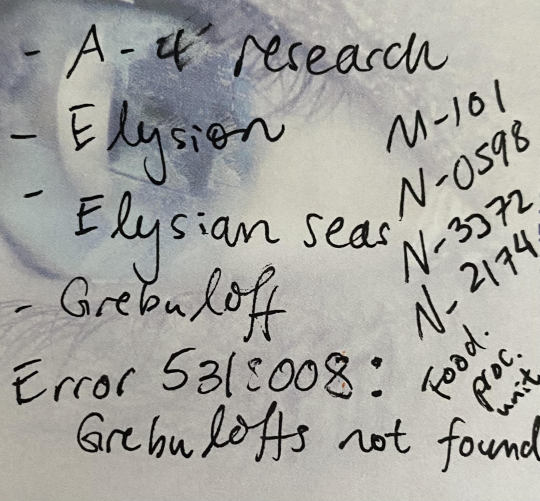 - A-4 research
- Elysion
- Elysian seas
- Grebuloff
Error 5318008:
Grebuloffs not found
M-101
N-0598
N-3372
N-2174
food.
proc.
unit